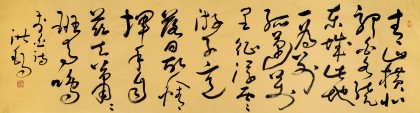 青山横北
郭白水绕
东城此地
一为别
孤蓬万
里征浮云
游子意
落日故情
挥手自
兹去萧萧
班马鸣
李白诗